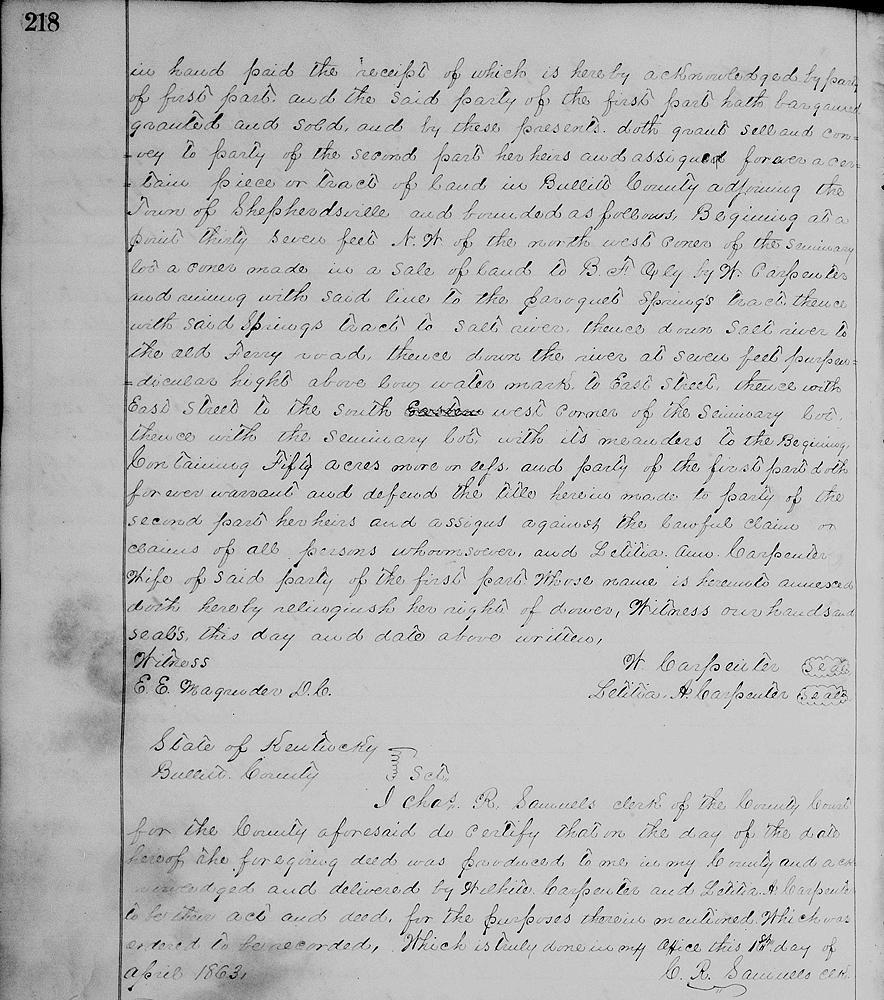 218
in hand paid the receipt of which is hereby acknowledged by party
of first part. and the said party of the first part hath bargained
granted and sold. and by these presents. doth grant sell and con=
=vey to party of the second part her heirs and assigned forever a cer=
=tain piece or tract of land in Bullitt County adjoining the
Town of Shepherdsville and bounded as follows, Begining at a
point thirty seven feet N. W of the north west coner of the Seminary
lot a coner made in a sale of land to B F by W. Carpenter
and runing with said line to the Paroquet Springs tract thence
with said Springs tract to Salt river, thence down Salt river to
the old Ferry road, thence down the river at seven feet purpen=
=dicular hight above low water mark, to East Street, thence with
East Street to the South Eastern west corner of the Seminary lot.
thence with the Seminary lot, with its meanders to the Begining,
Containing Fifty acres more or less. and party of the first part doth
forever warrant and defend the title herein made to party of the
second part her heirs and assigns against the lawful claim or
claims of all persons whomsoever, and Letitia Ann. Carpenter
Wife of said party of the first part Whose name is hereunto annexed
doth hereby relinquish her right of dower, Witness our hands and
seals, this day and date above written,
Witness W Carpenter Seal
E. E. Magruder D.C. Letitia. A. Carpenter Seal
State of Kentucky
Bullitt. County Sct,
I Chas. R. Samuels clerk of the County Court
for the County aforesaid do certify that on the day of the date
hereof the foregoing deed was produced to me in my County and ack
nowledged and delivered by Wilhite Carpenter and Letitia. A Carpenter
to be their act and deed, for the purposes therein mentioned Which was
ordered to be recorded, Which is truly done in my office this 1st day of
April 1863, C. R. Samuels clk.